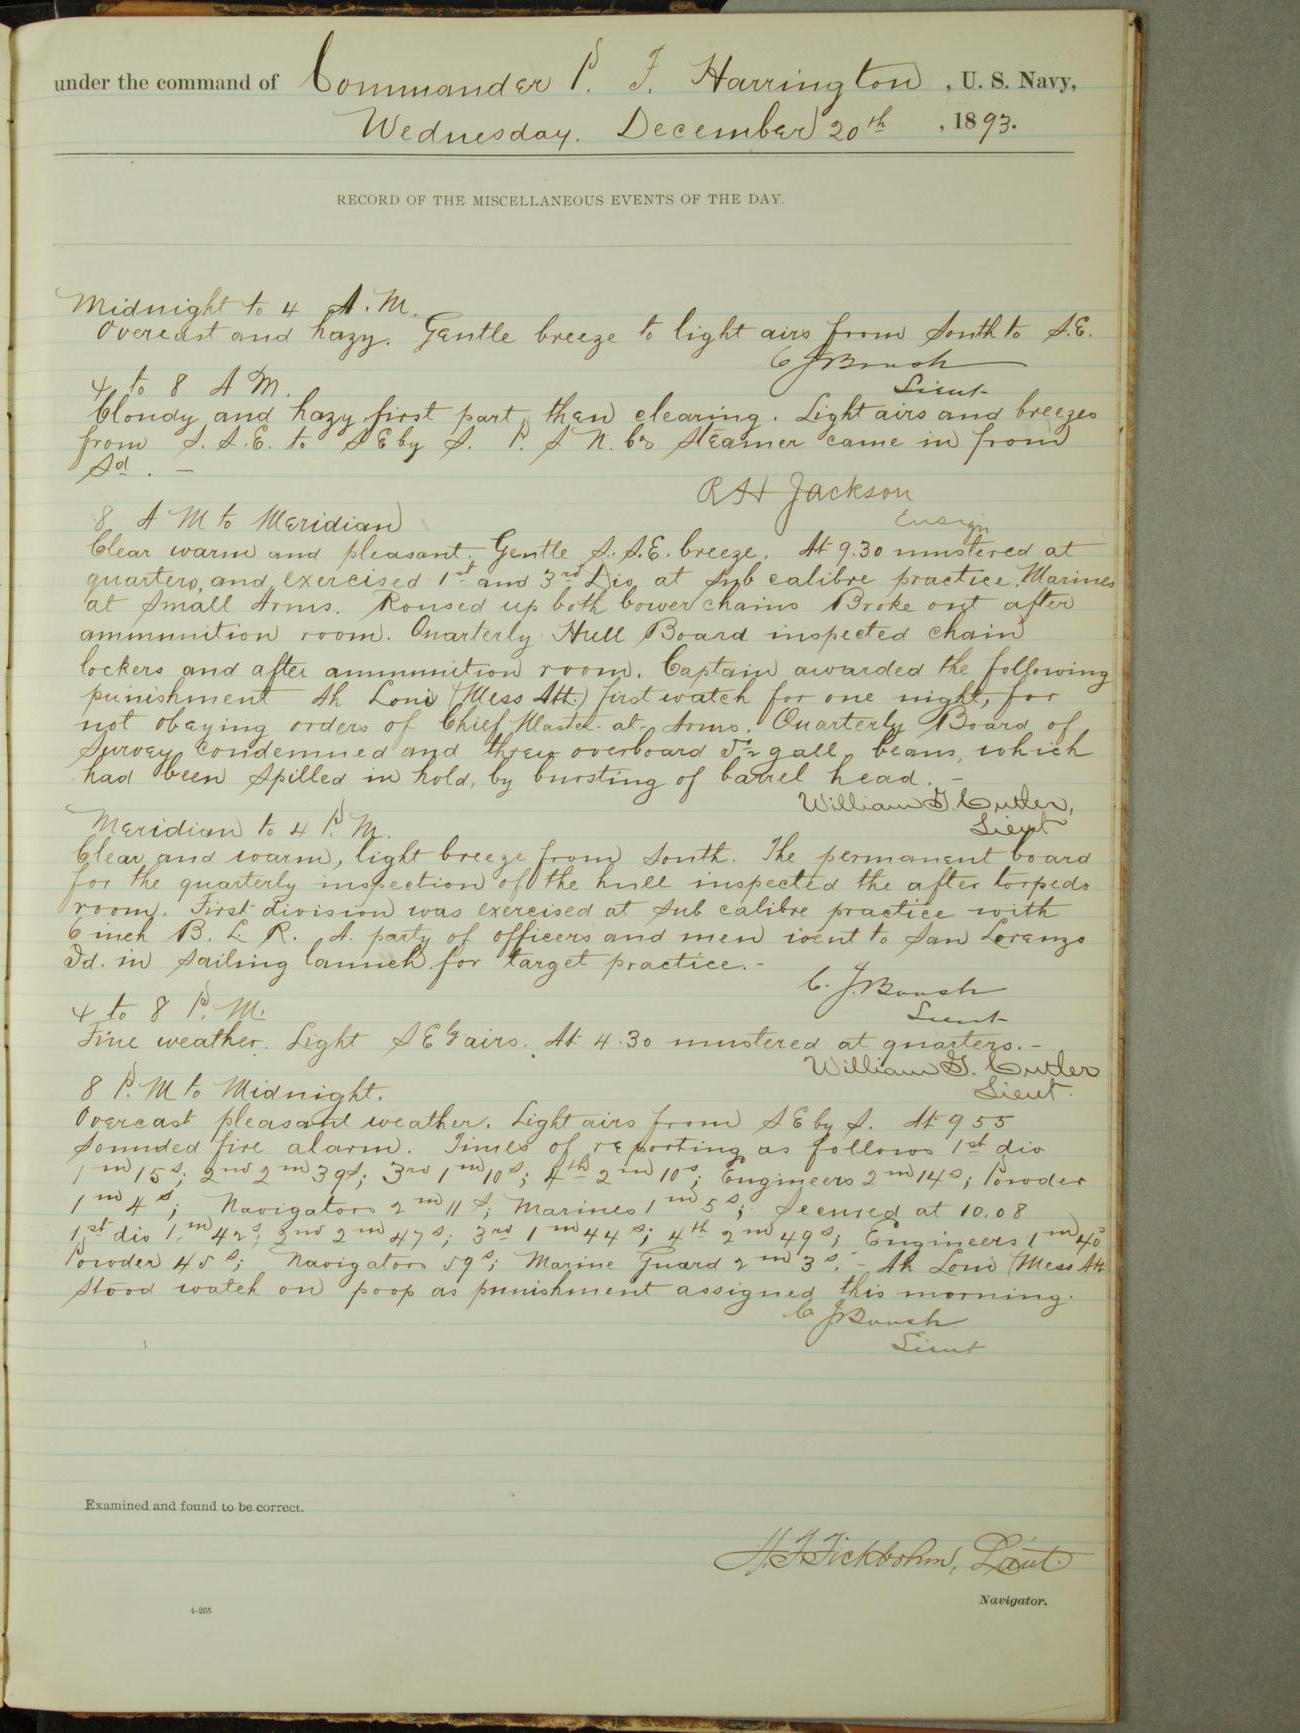 under the command of Commander P. F. Harrington, U. S. Navy,
Wednesday. December 20th, 1893.
RECORD OF THE MISCELLANEOUS EVENTS OF THE DAY.
Midnight to 4 A.M.
Overcast and hazy. Gentle breeze to light airs from South to S.E.
C J Boush
Lieut
4 to 8 A M.
Cloudy and hazy first part, then clearing. Light airs and breezes
from S. S. E. to S E by S. P. S N. Co's Steamer came in from
Sd. —
R H Jackson
Ensign
8 A M to Meridian
Clear warm and pleasant. Gentle S. S. E. breeze. At 9.30 mustered at
quarters, and exercised 1st and 3rd Div, at Sub calibre practice. Marines
at Small Arms. Roused up both bower chains Broke out after
ammunition room. Quarterly Hull Board inspected chain
lockers and after ammunition room. Captain awarded the following
punishment Ah Loni (Mess Att.) first watch for one night, for
not obeying orders of Chief Master-at-Arms. Quarterly Board of
Survey condemned and threw overboard gall. beans, which
had been spilled in hold, by bursting of barrel head. —
William G. Cutler,
Lieut
Meridian to 4 P. M.
Clear and warm, light breeze from South. The permanent board
for the quarterly inspection of the hull inspected the after torpedo
room. First division was exercised at Sub calibre practice with
6 inch B. L. R. A party of officers and men went to San Lorenzo
Id. in Sailing launch for target practice. -
C. J. Boush
Lieut
4 to 8 P. M.
Fine weather. Light S E'ly airs. At 4.30 mustered at quarters. -
William G. Cutler
Lieut.
8 P. M to Midnight.
Overcast pleasant weather. Light airs from S E by S. At 9 55
Sounded fire alarm. Times of reporting as follows 1st div
1m 15s; 2nd 2m 39s; 3rd 1m 10s; 4th 2m 10s; Engineers 2m 14s; Powder
1m 4s; Navigators 2m 11s; Marines 1m 5s; Secured at 10.08
1st div 1m 42s; 2nd 2m 47s; 3rd 1m 44s; 4th 2m 49s; Engineers 1m 40s
Powder 45s; Navigators 59s; Marine Guard 2m 3s. - Ah Loni (Mess Att
stood watch on poop as punishment assigned this morning.
C J Boush
Lieut
Examined and found to be correct.
H. F. Fickbohm, Lieut.
Navigator.
4-265